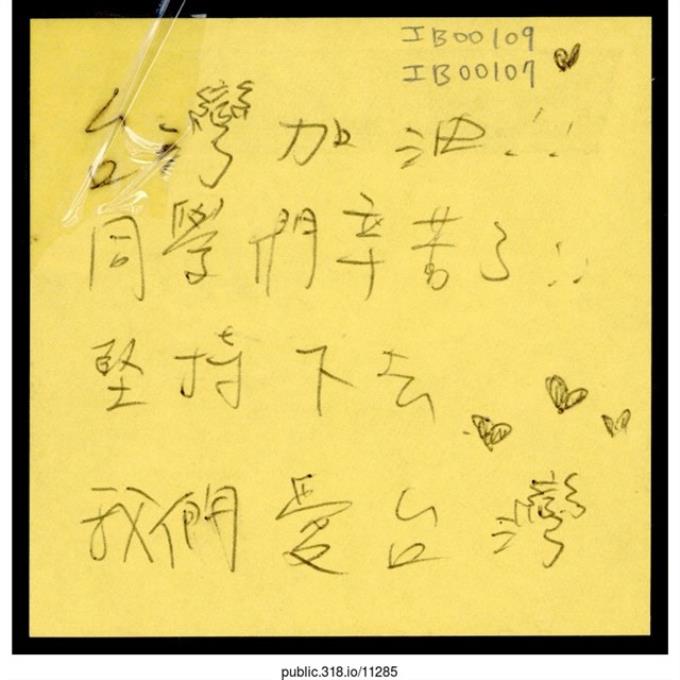 IB00109
IB00107
台灣加油!!
同學們辛苦了!!
堅持下去
我們愛台灣
public.318.io/11285